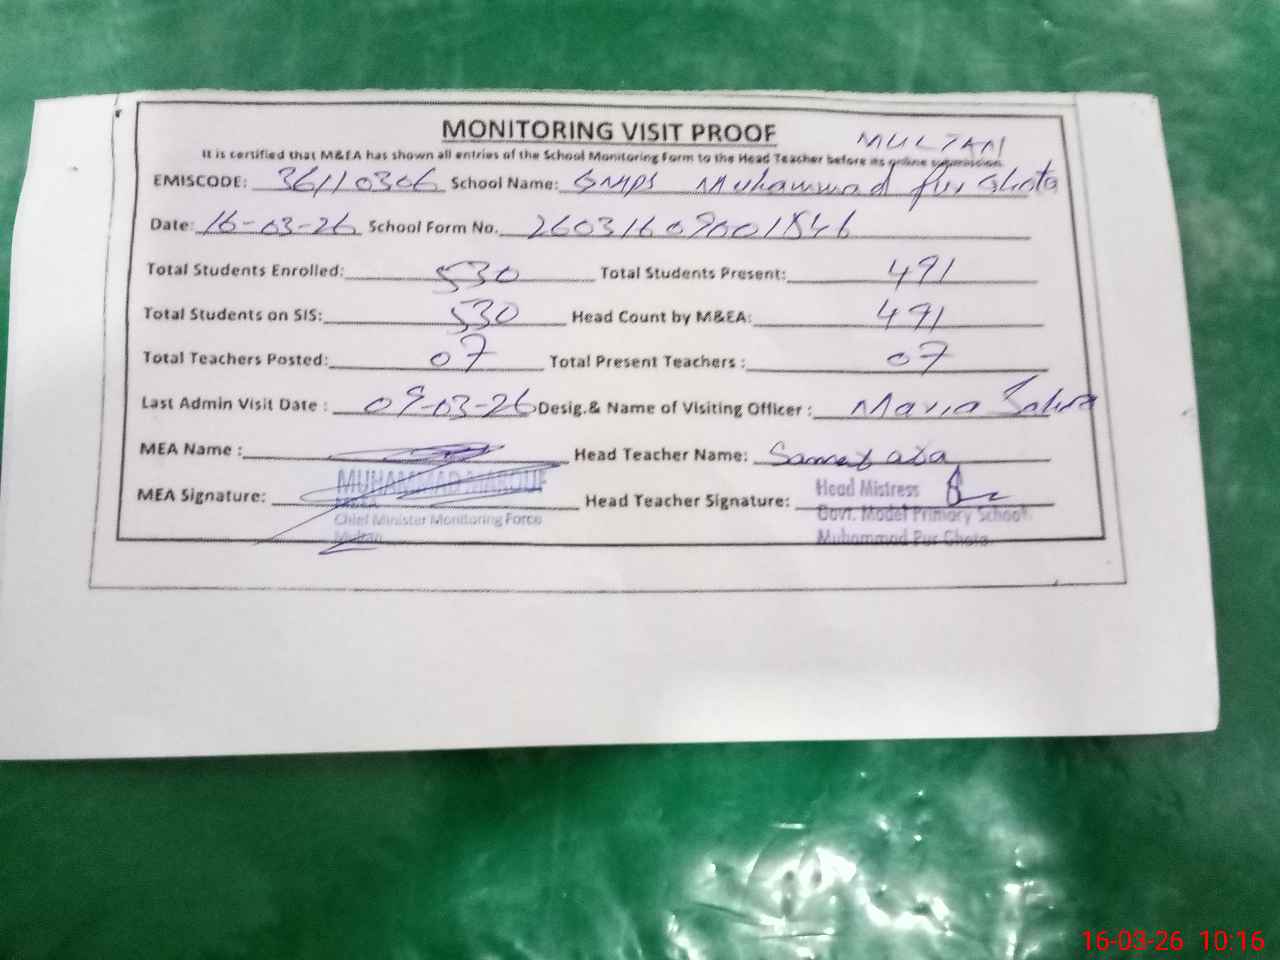 MONITORING VISIT PROOF
MULTAN
It is certified that M&EA has shown all entries of the School Monitoring Form to the Head Teacher before its online submission.
EMISCODE: 36110306 School Name: GMPS Muhammad Pur Ghota
Date: 16-03-26 School Form No. 260316090001546
Total Students Enrolled: 530 Total Students Present: 491
Total Students on SIS: 530 Head Count by M&EA: 491
Total Teachers Posted: 07 Total Present Teachers : 07
Last Admin Visit Date : 09-03-26 Desig.& Name of Visiting Officer : Maria
MEA Name : Head Teacher Name:
MUHAMMAD MAROUF
MEA Signature: Head Teacher Signature:
Head Mistress
Chief Minister Monitoring Force
Govt. Model Primary School
Multan
Muhammad Pur Ghota
16-03-26 10:16